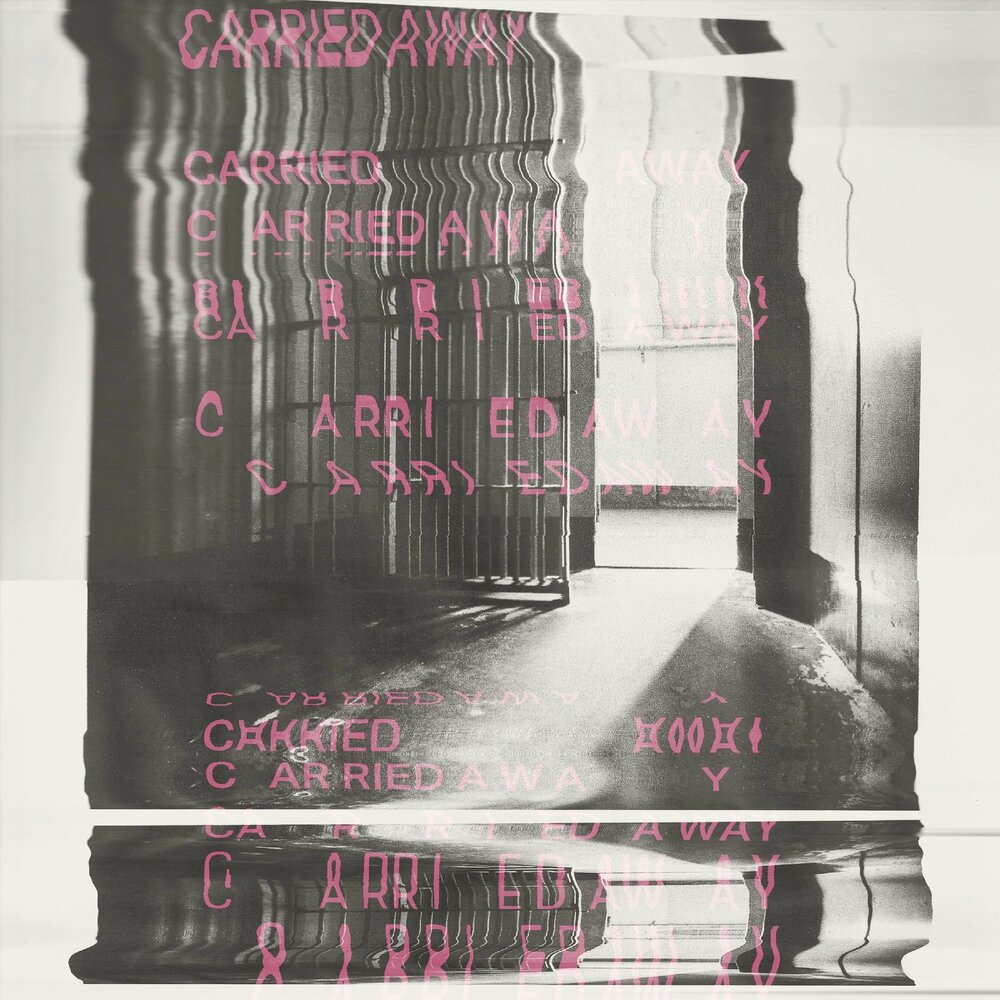 CARRIED AWAY
CARRIED AWAY
C ARRIEDAWA Y
CA R R I ED AWAY
C ARRI EDAW AY
C ARRI EDAW AY
C ARRIEDAWA Y
C ARRIEDAWA Y
CA R R I ED AWAY
C ARRI EDAW AY